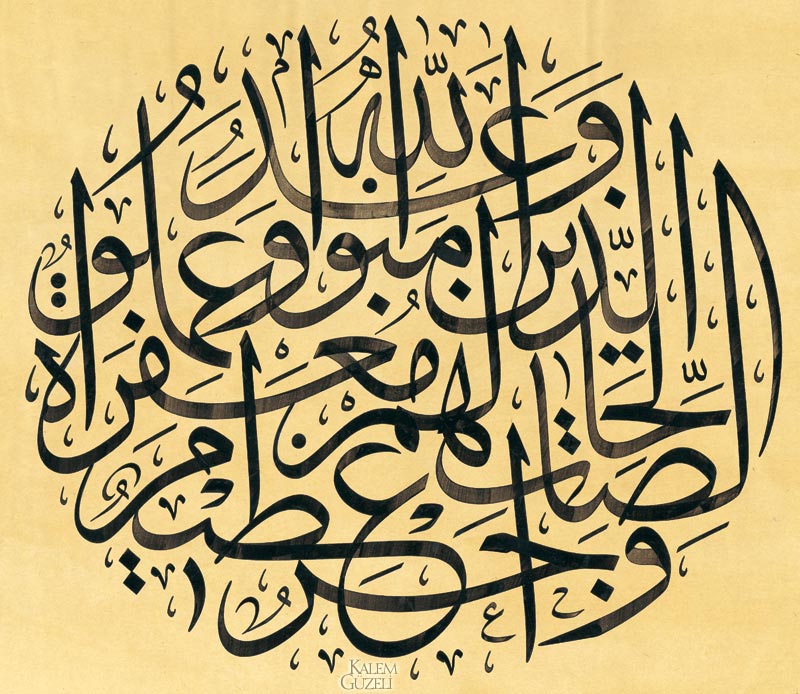 وَعَدَ اللّٰهُ
الَّذِينَ اٰمَنُوا وَعَمِلُوا
الصَّالِحَاتِ لَهُمْ مَغْفِرَةٌ
وَاَجْرٌ عَظِيمٌ
KALEM
GÜZELİ